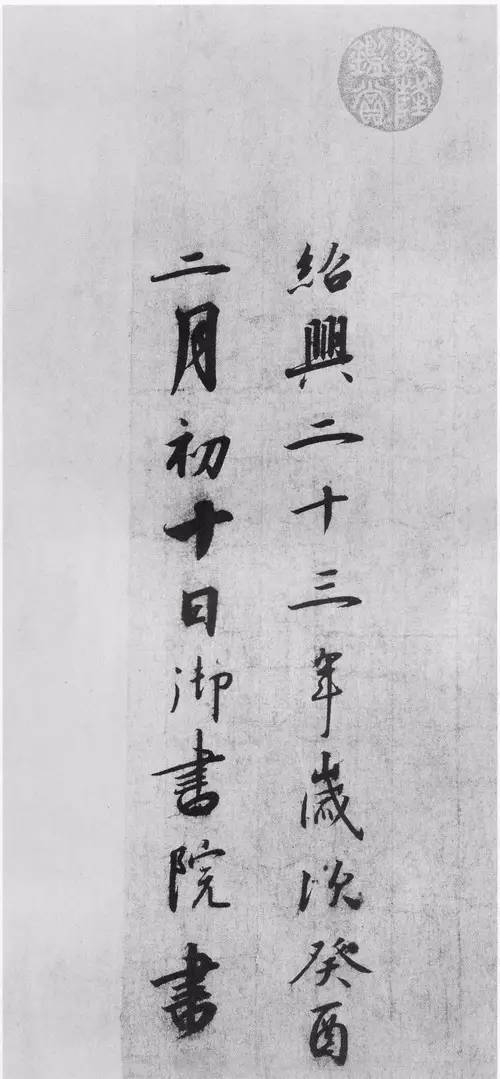 乾隆鑑賞
紹興二十三年歲次癸酉
二月初十日御書院書